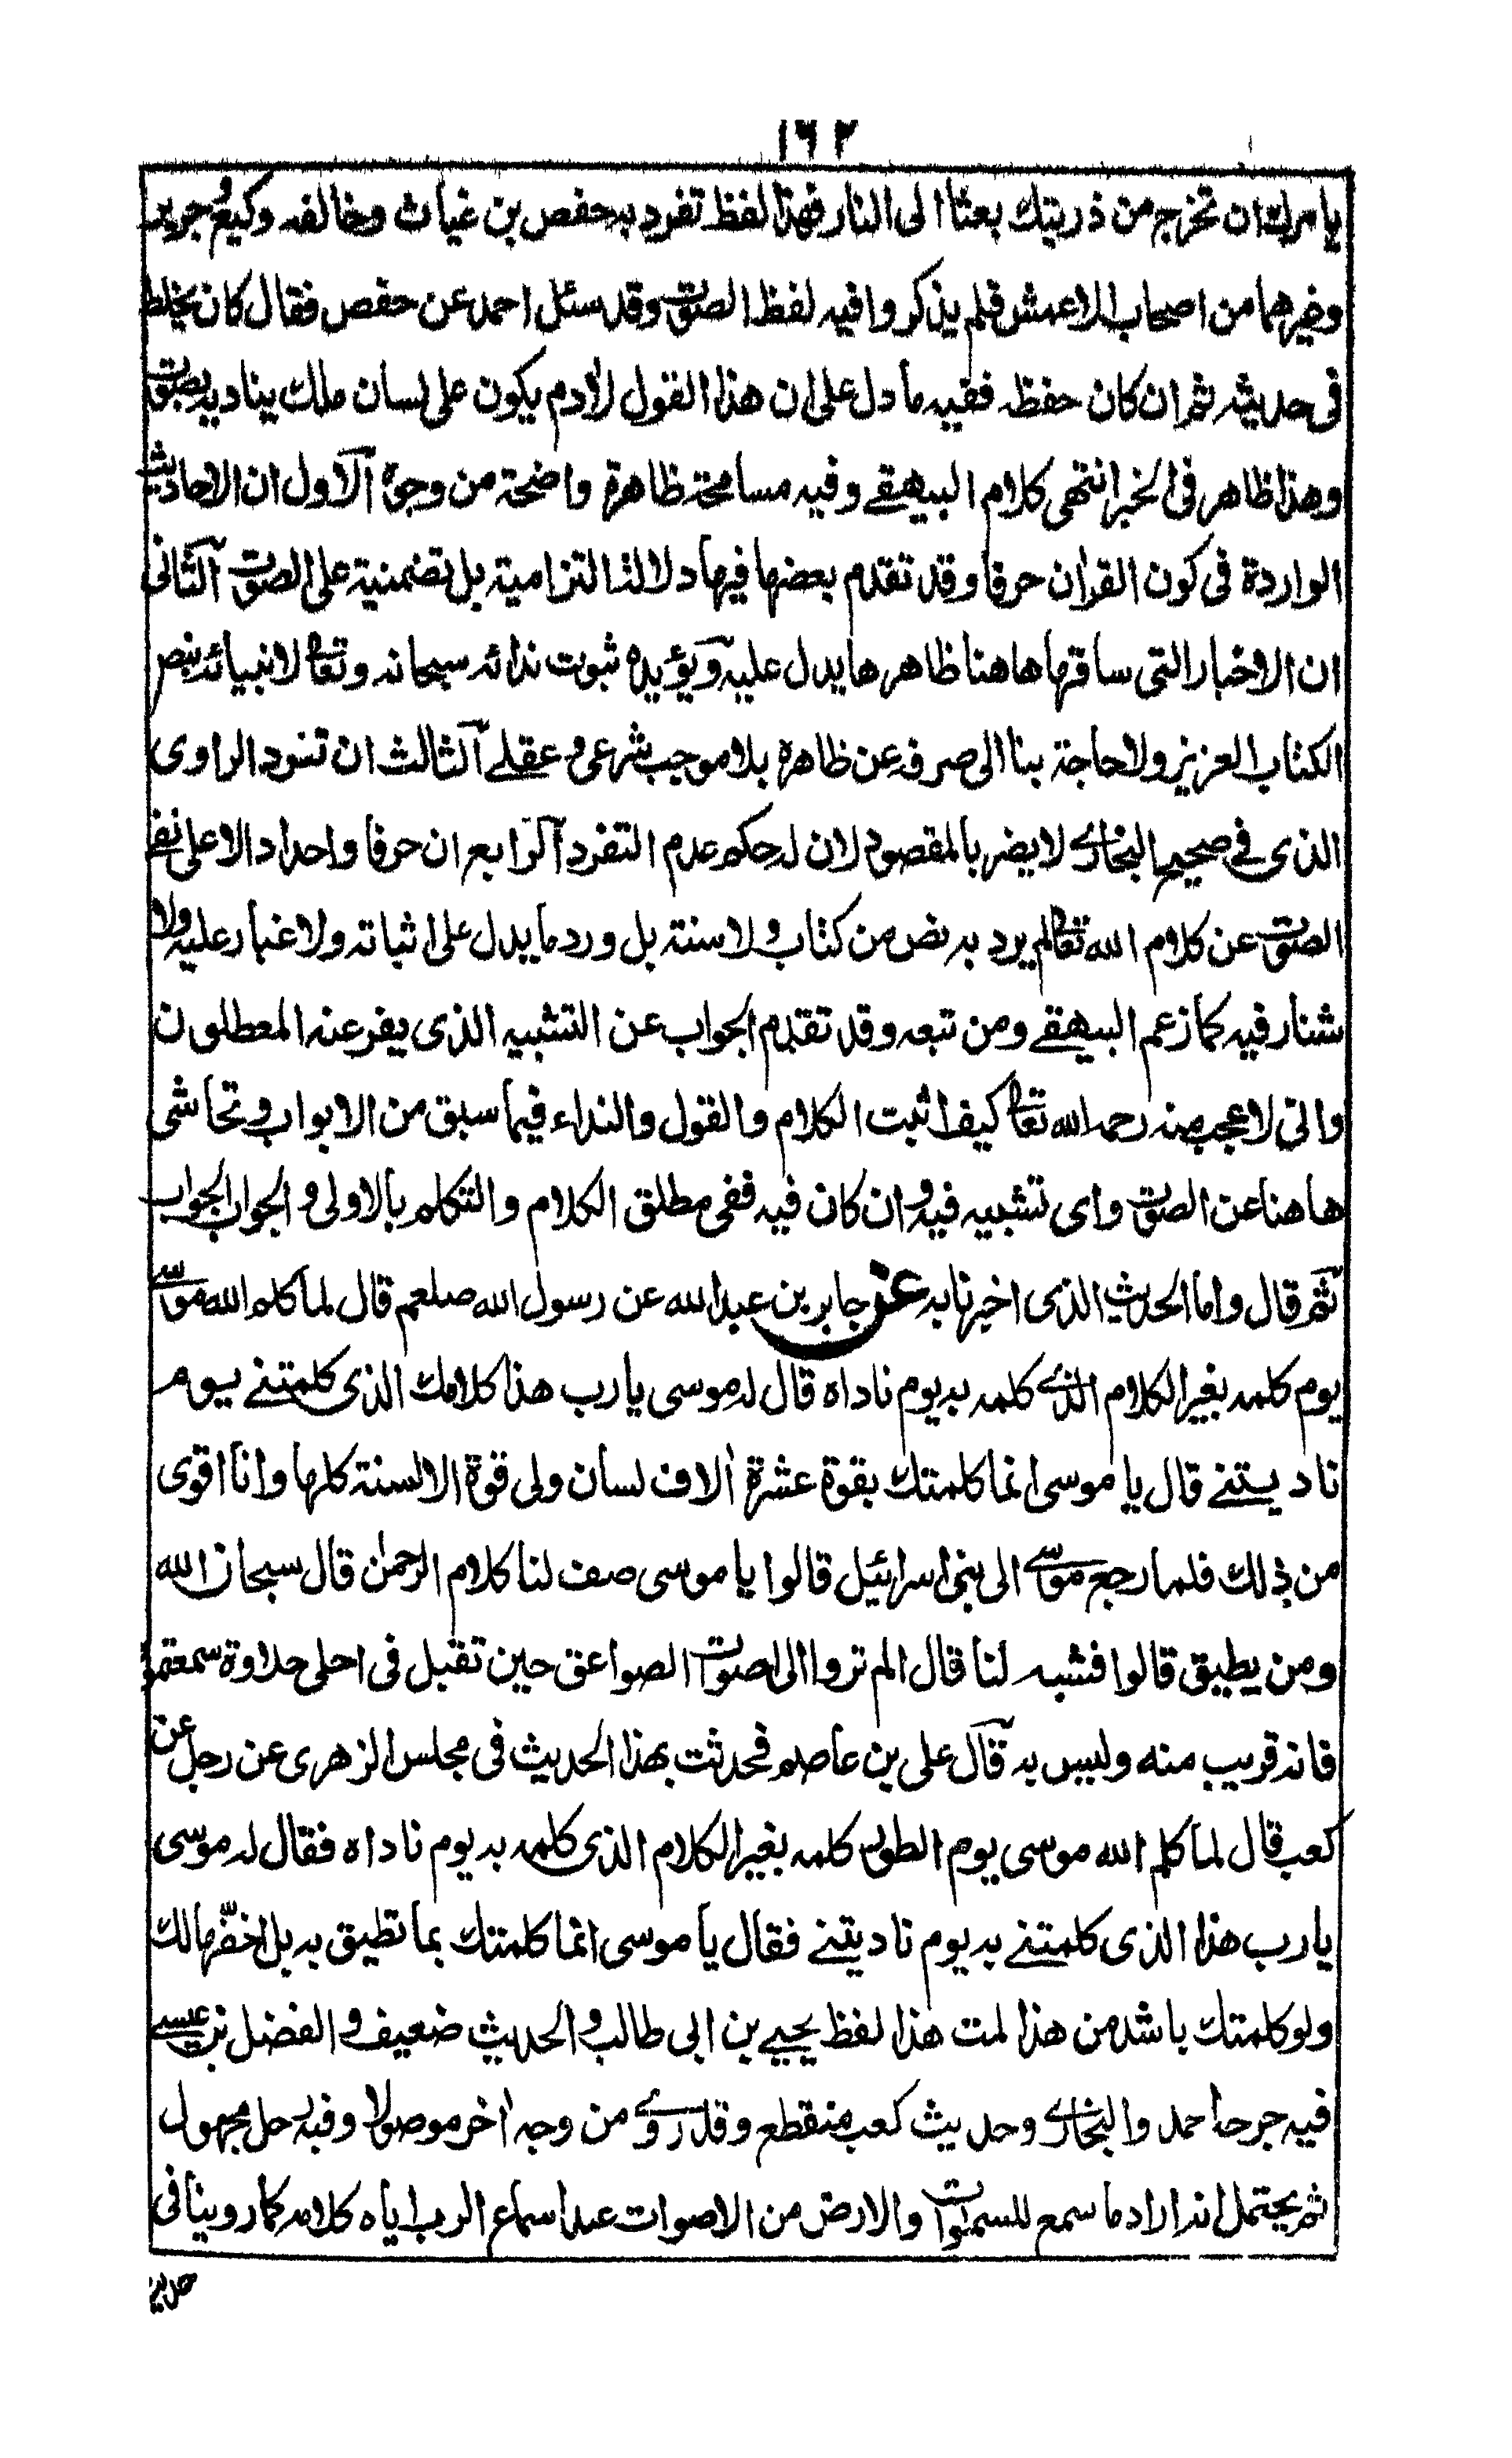 ١٦٢
يامرك ان تخرج من ذريتك بعثا الى النار فهذا لفظ تفرد به حفص بن غياث وخالفه وكيع وجرير
وغيرهما من اصحاب الاعمش فلم يذكروا فيه لفظ الصوت وقد سئل احمد عن حفص فقال كان يخلط
فى حديثه ثم ان كان حفظه ففيه ما دل على ان هذا القول لآدم يكون على لسان ملك يناديه بصوت
وهذا ظاهر فى الخبر انتهى كلام البيهقے وفيه مسامحة ظاهرة واضحة من وجوه آلاول ان الاحاديث
الواردة فى كون القران حرفا وقد تقدم بعضها فيها دلالة التزامية بل تضمنية على الصوت آلثانى
ان الاخبار التى ساقها هاهنا ظاهرها يدل عليه ويؤيده ثبوت ندائه سبحانه وتعالى لانبيائه بنص
الكتاب العزيز ولا حاجة بنا الى صرفه عن ظاهره بلا موجب شرعى و عقلے آلثالث ان تفرد الراوى
الذى فے صحيح البخارے لا يضر بالمقصود لان له حكم عدم التفرد آلرابع ان حرفا واحدا دالا على نفے
الصوت عن كلام الله تعالى لم يرد به نص من كتاب ولا سنة بل ورد ما يدل على اثباته ولا غبار عليه ولا
شنار فيه كما زعم البيهقے ومن تبعه وقد تقدم الجواب عن التشبيه الذى يفر عنه المعطلون
وانى لاعجب منه رحمه الله تعالى كيف اثبت الكلام والقول والنداء فيما سبق من الابواب و تحاشى
هاهنا عن الصوت واى تشبيه فيه و ان كان فيه ففى مطلق الكلام والتكلم بالاولى و الجواب الجواب
ثم قال واما الحديث الذى اخبرنا به عن جابر بن عبد الله عن رسول الله صلعم قال لما كلم الله موسے
يوم كلمه بغير الكلام الذے كلمه به يوم ناداه قال له موسى يا رب هذا كلامك الذى كلمتنے يوم
ناديتنے قال يا موسى انما كلمتك بقوة عشرة آلاف لسان ولى قوة الالسنة كلها وانا اقوى
من ذلك فلما رجع موسے الى بنى اسرائيل قالوا يا موسى صف لنا كلام الرحمن قال سبحان الله
ومن يطيق قالوا فشبه لنا قال الم تروا الى اصوات الصواعق حين تقبل فى احلى حلاوة سمعتموه
فانه قريب منه وليس به قال على بن عاصم فحدثت بهذا الحديث فى مجلس الزهرى عن رجل عن
كعب قال لما كلم الله موسى يوم الطور كلمه بغير الكلام الذى كلمه به يوم ناداه فقال له موسى
يا رب هذا الذى كلمتنے به يوم ناديتنے فقال يا موسى انما كلمتك بما تطيق به بل اخفها لك
ولو كلمتك باشد من هذا لمت هذا لفظ يحيے بن ابى طالب و الحديث ضعيف و الفضل بن عيسے
فيه جرحا احمد والبخارے وحديث كعب منقطع وقد روے من وجه آخر موصولا وفيه رجل مجهول
ثم يحتمل انه اراد ما سمع للسموات والارض من الاصوات عند اسماع الرب اياه كلامه كما روينا فى